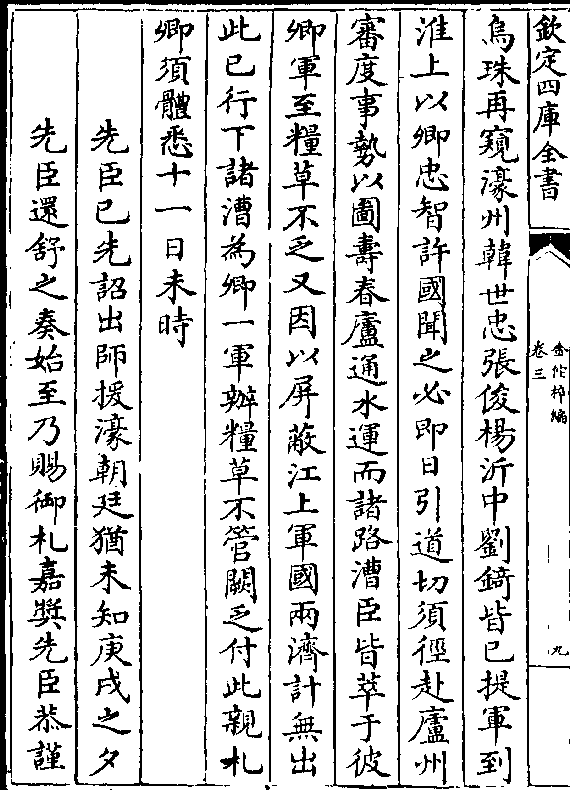 欽定四庫全書
金佗稡編
卷三
九
烏珠再窺濠州韓世忠張俊楊沂中劉錡皆已提軍到
淮上以卿忠智許國聞之必即日引道切須徑赴廬州
審度事勢以圖壽春廬通水運而諸路漕臣皆萃于彼
卿軍至糧草不乏又因以屏蔽江上軍國兩濟計無出
此已行下諸漕為卿一軍辦糧草不管闕乏付此親札
卿須體悉十一日未時
先臣已先詔出師援濠朝廷猶未知庚戌之夕
先臣還舒之奏始至乃賜御札嘉奬先臣恭謹